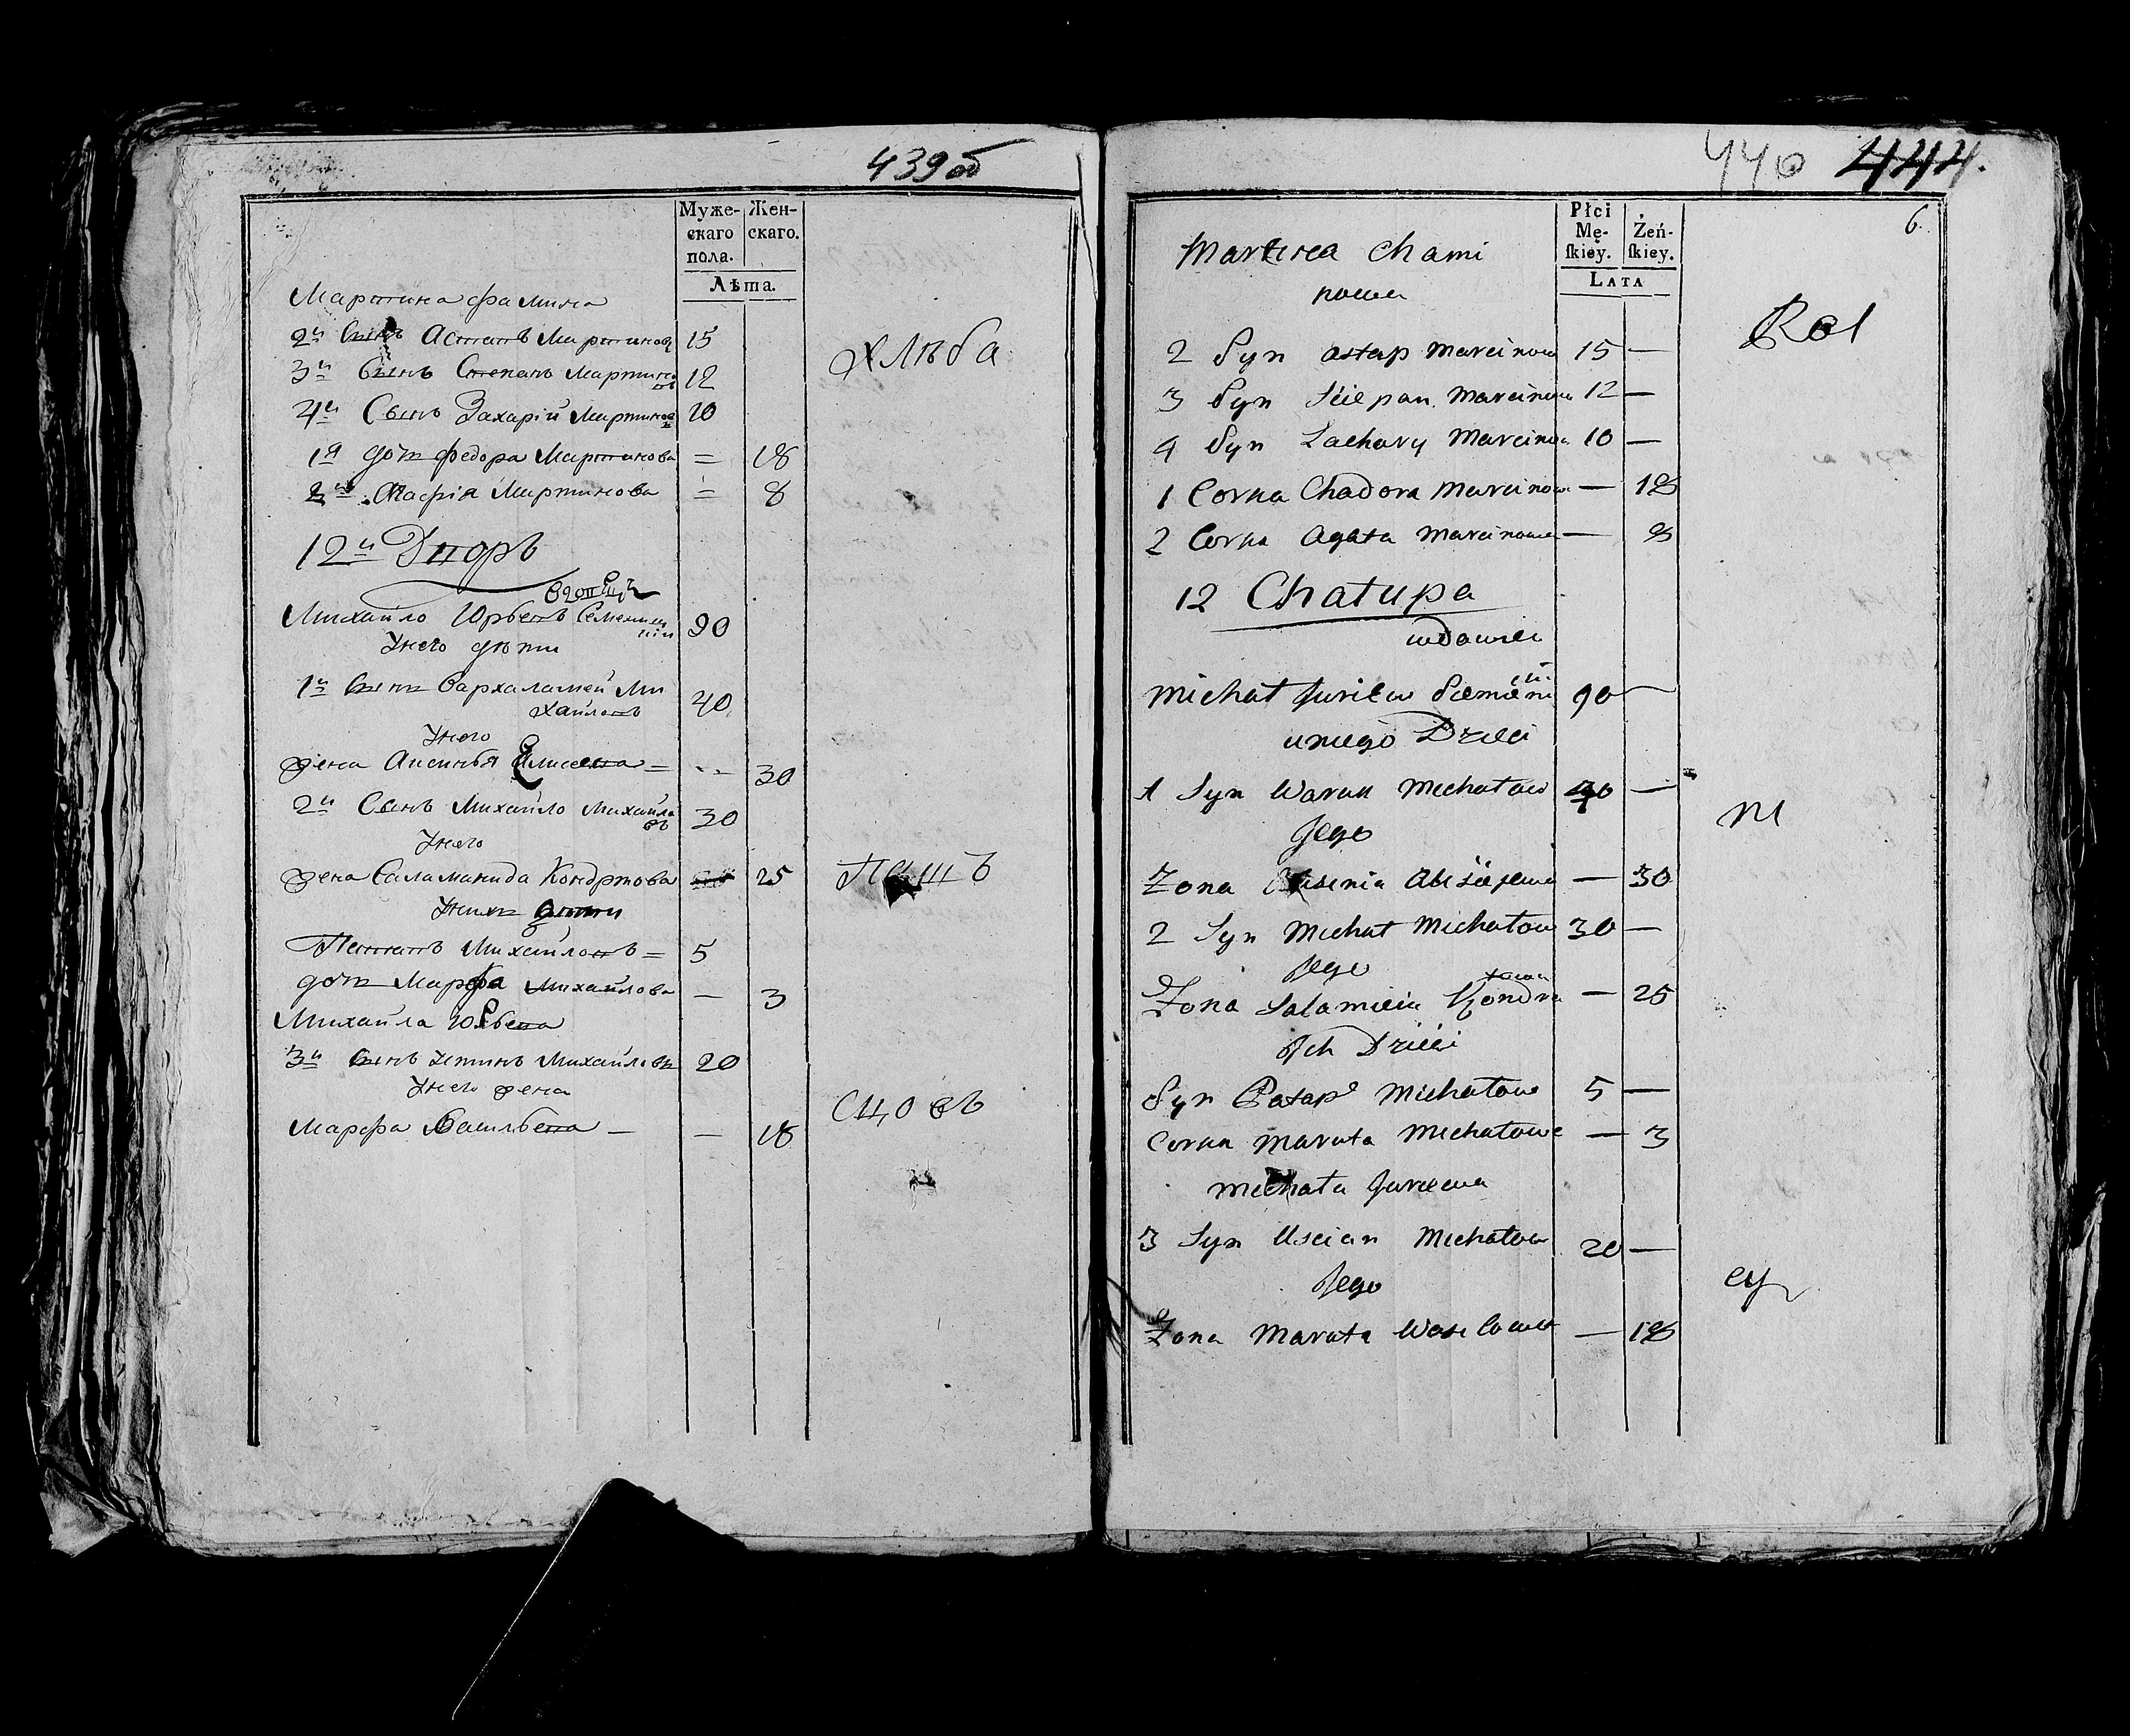 439об
Муже-
скаго
пола.
Жен-
скаго.
Лѣта.
Мартина фамина
2й Сынъ Астапъ Мартиновъ 15
3й Сынъ Степанъ Мартиновъ 12
4й Сынъ Захарій Мартиновъ 10
1я доч Федора Мартинова = 18
2я Мартинова = 8
хлѣба
12й Дворъ
Михайло Юрьевъ 90
У него дѣти
1й Сынъ Вархаламей Михайловъ 40
У него
жена Аксинья = 30
2й Сынъ Михайло Михайловъ 30
У него
жена Саламанида Кондртова 25
У них дѣти
Патапъ Михайловъ = 5
доч Марфа Михайлова — 3
Михайла Юрьева
3й Сынъ Устинъ Михайловъ 20
У него жена
Марфа Васильева — — 18
цовъ
440 444.
6.
Płci
Mę-
skiey.
Żeń-
skiey.
Lata
Marcina Chami
nowa
2 Syn Astap Marcinow 15 —
3 Syn Sciepan Marcinow 12 —
4 Syn Zachary Marcinow 10 —
1 Corka Chadora Marcinowa — 18
2 Corka Agata Marcinowa — 8
Rol
12 Chałupa
wdowiec
Michał Juriew 90 —
u niego Dzieci
1 Syn Michałow 40 —
Jego
Zona — 30
2 Syn Michał Michałow 30 —
Jego
Zona Kondratowa — 25
Ich Dzieci
Syn Patap Michałow 5 —
Corka Maruta Michałowa — 3
Michała Juriewa
3 Syn Uscian Michałow 20 —
Jego
Zona Maruta — 18
ni
cy